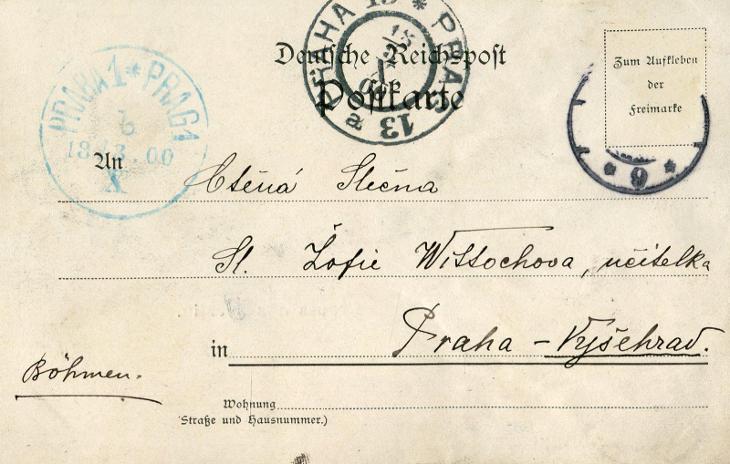 PRAHA 13 * PRAG 13
a
Deutsche Reichspost
Postkarte
PRAHA 1 * PRAG 1
13.00
X
Zum Aufkleben
der
Freimarke
* 6 *
An Ctěná Slečna
Sl. Žofie Wittochova, učitelka
in Praha – Vyšehrad.
Böhmen.
Wohnung
(Straße und Hausnummer.)